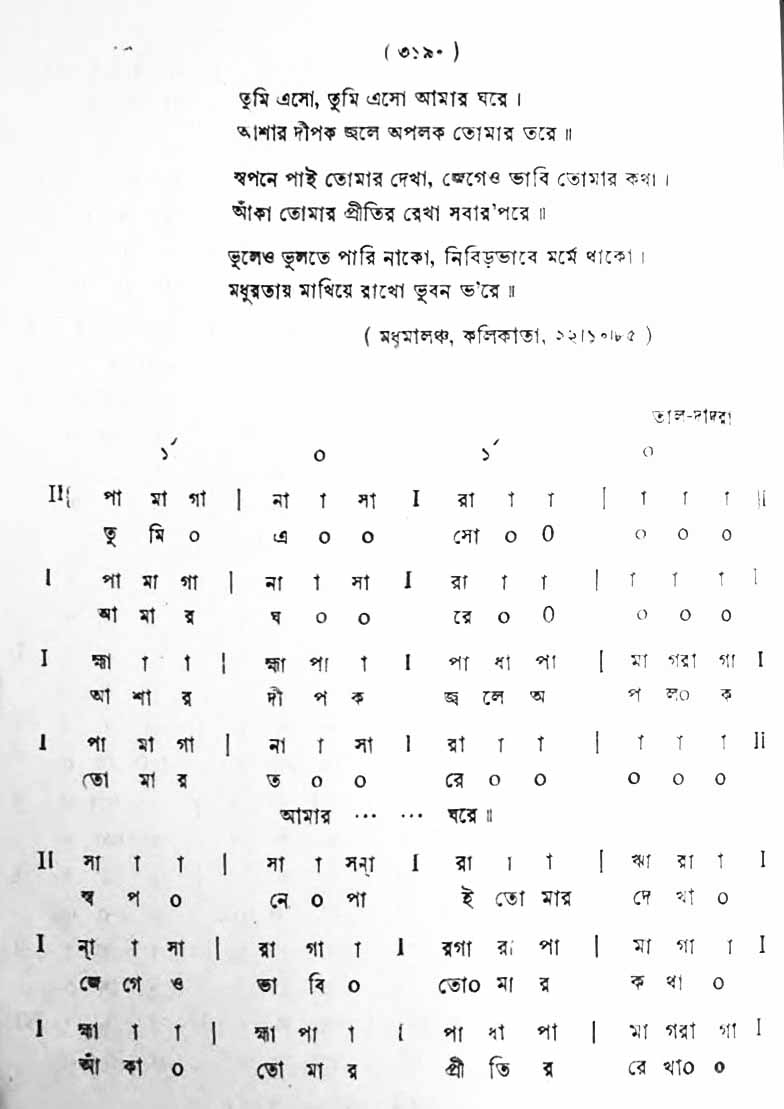 ( ৩১৯০ )
তুমি এসো, তুমি এসো আমার ঘরে ।
আশার দীপক জ্বলে অপলক তোমার তরে ॥
স্বপনে পাই তোমার দেখা, জেগেও ভাবি তোমার কথা ।
আঁকা তোমার প্রীতির রেখা সবার'পরে ॥
ভুলেও ভুলতে পারি নাকো, নিবিড়ভাবে মর্মে থাকো ।
মধুরতায় মাখিয়ে রাখো ভুবন ভ'রে ॥
( মধুমালঞ্চ, কলিকাতা, ১২।১০।৮৫ )
তাল-দাদরা
১´ ০ ১´ ০
II{ পা মা গা | না া সা I রা া া | া া া }I
তু মি ০ এ ০ ০ সো ০ ০ ০ ০ ০
I পা মা গা | না া সা I রা া া | া া া I
আ মা র ঘ ০ ০ রে ০ ০ ০ ০ ০
I হ্মা া া | হ্মা পা া I পা ধা পা | মা গরা গা I
আ শা র দী প ক জ্ব লে অ প ল০ ক
I পা মা গা | না া সা I রা া া | া া া II
তো মা র ত ০ ০ রে ০ ০ ০ ০ ০
আমার ... ... ঘরে ॥
II সা া া | সা া সন্া I রা া া | ঋা রা া I
স্ব প ০ নে ০ পা ই তো মার দে খা ০
I ন্া া সা | রা গা া I রগা রা পা | মা গা া I
জে গে ও ভা বি ০ তো০ মা র ক থা ০
I হ্মা া া | হ্মা পা া I পা ধা পা | মা গরা গা I
আঁ কা ০ তো মা র প্রী তি র রে খা০ ০